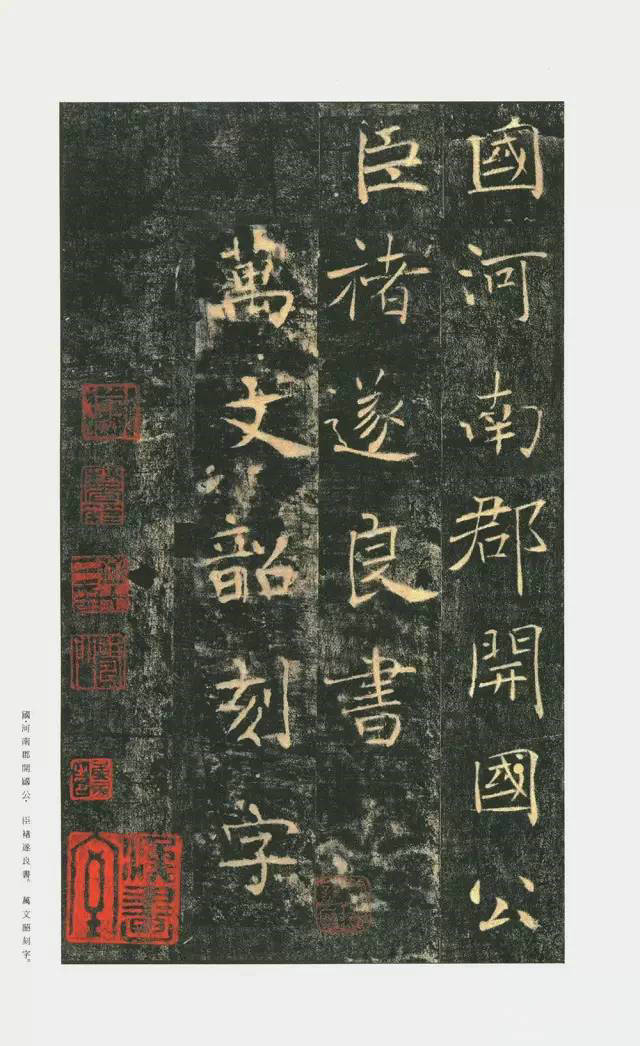 國河南郡開國公
臣褚遂良書
萬文韶刻字
國·河南郡開國公· 臣褚遂良書。 萬文韶刻字。